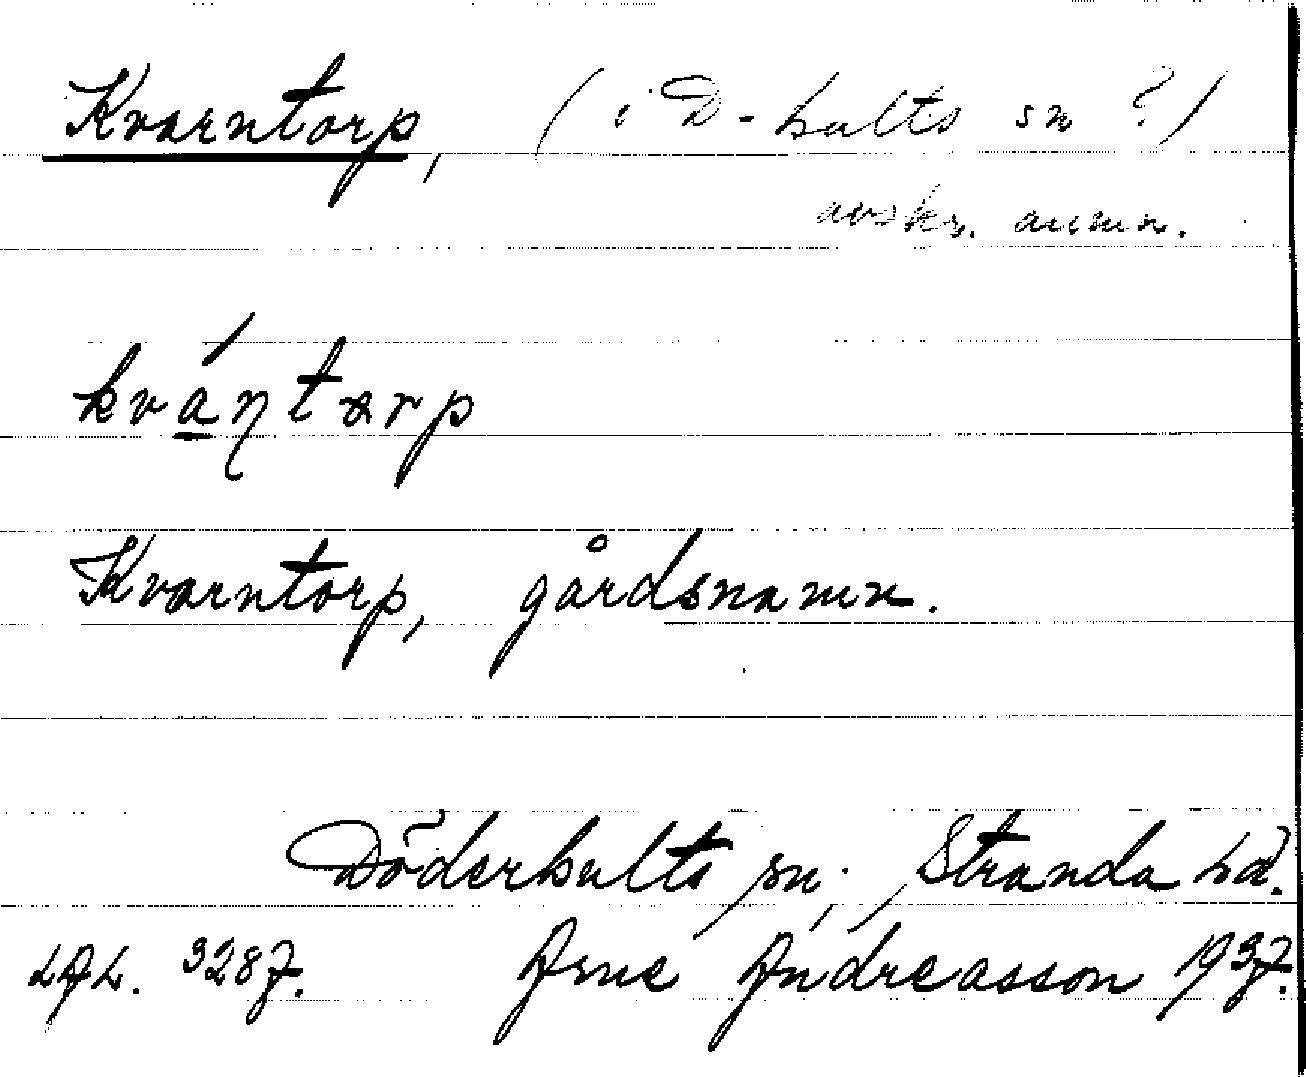 Kvarntorp, (i D-hults sn ?)
avskr. anmn.
kvá̱ŋtɔrp
Kvarntorp, gårdsnamn.
Döderhults sn., Stranda hd.
3287. Arne Andreasson 1937.